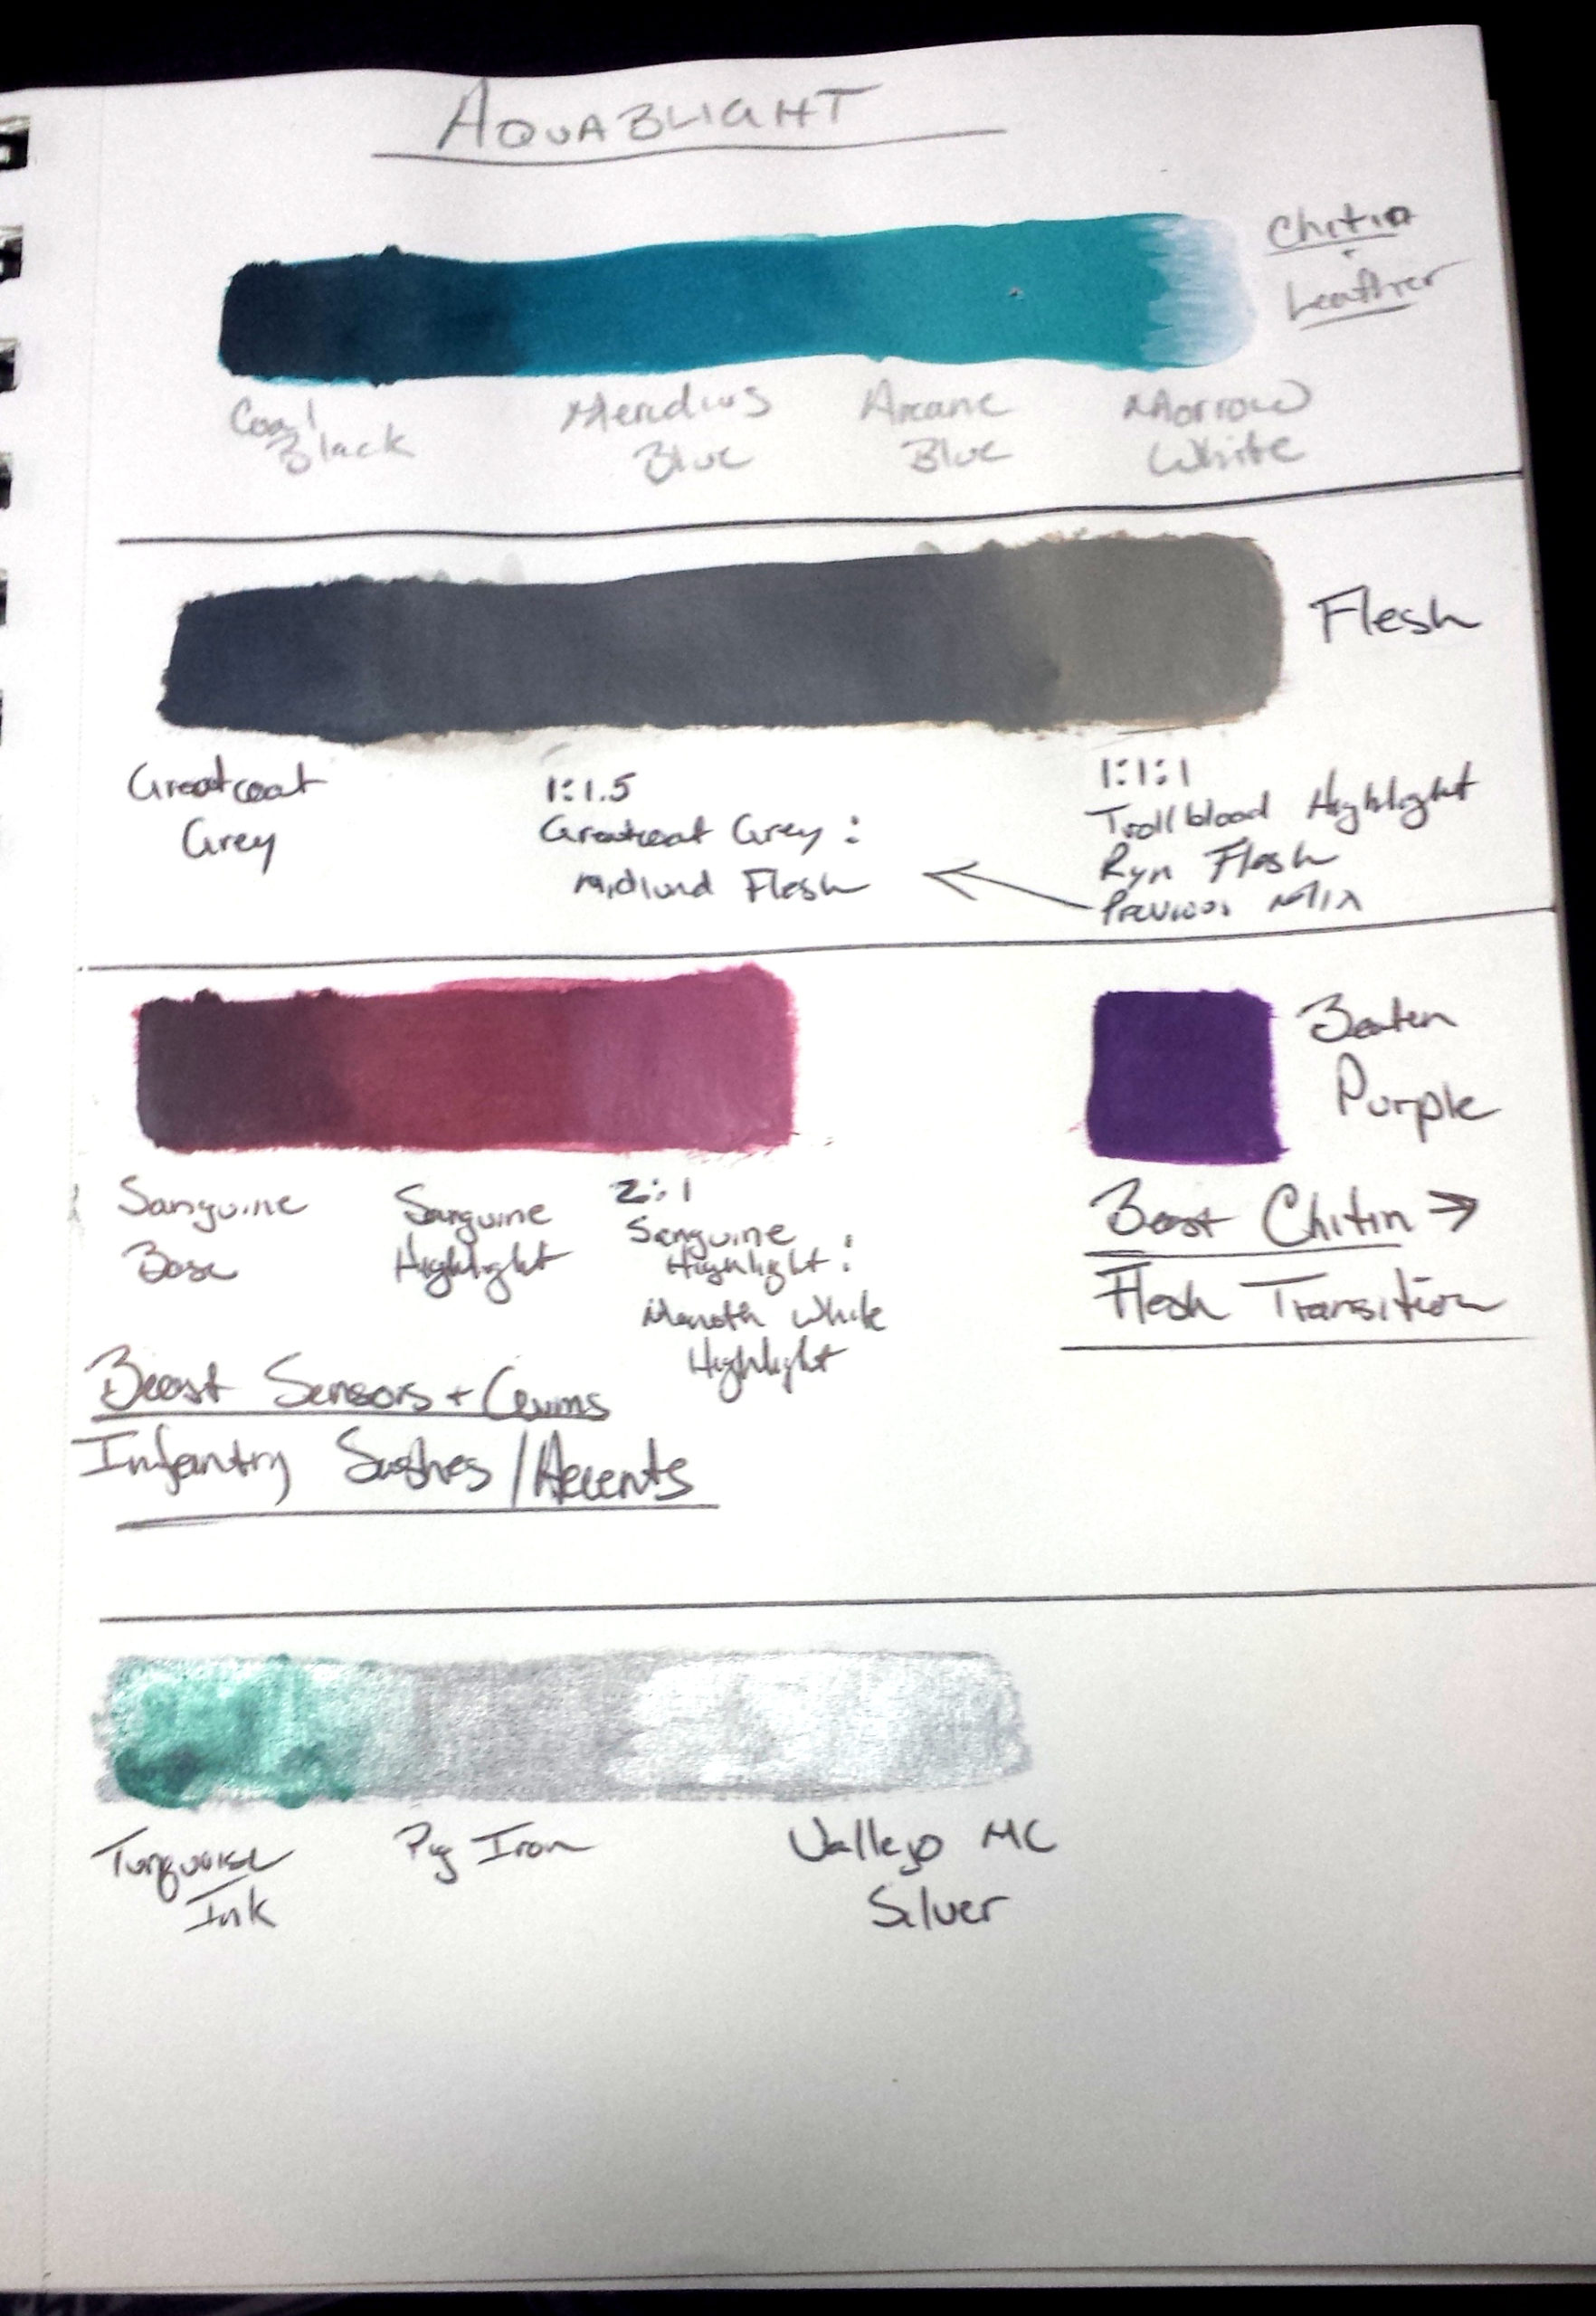 AQUABLIGHT
Chitin
+
Leather
Coal
Black
Meredius
Blue
Arcane
Blue
Morrow
White
Flesh
Greatcoat
Grey
1:1.5
Greatcoat Grey :
Midlund Flesh
1:1:1
Trollblood Highlight
Ryn Flesh
Previous Mix
Sanguine
Base
Sanguine
Highlight
2:1
Sanguine
Highlight :
Menoth White
Highlight
Beast Sensors +
Infantry Sashes/Accents
Beaten
Purple
Beast Chitin →
Flesh Transition
Turquoise
Ink
Pig Iron
Vallejo MC
Silver